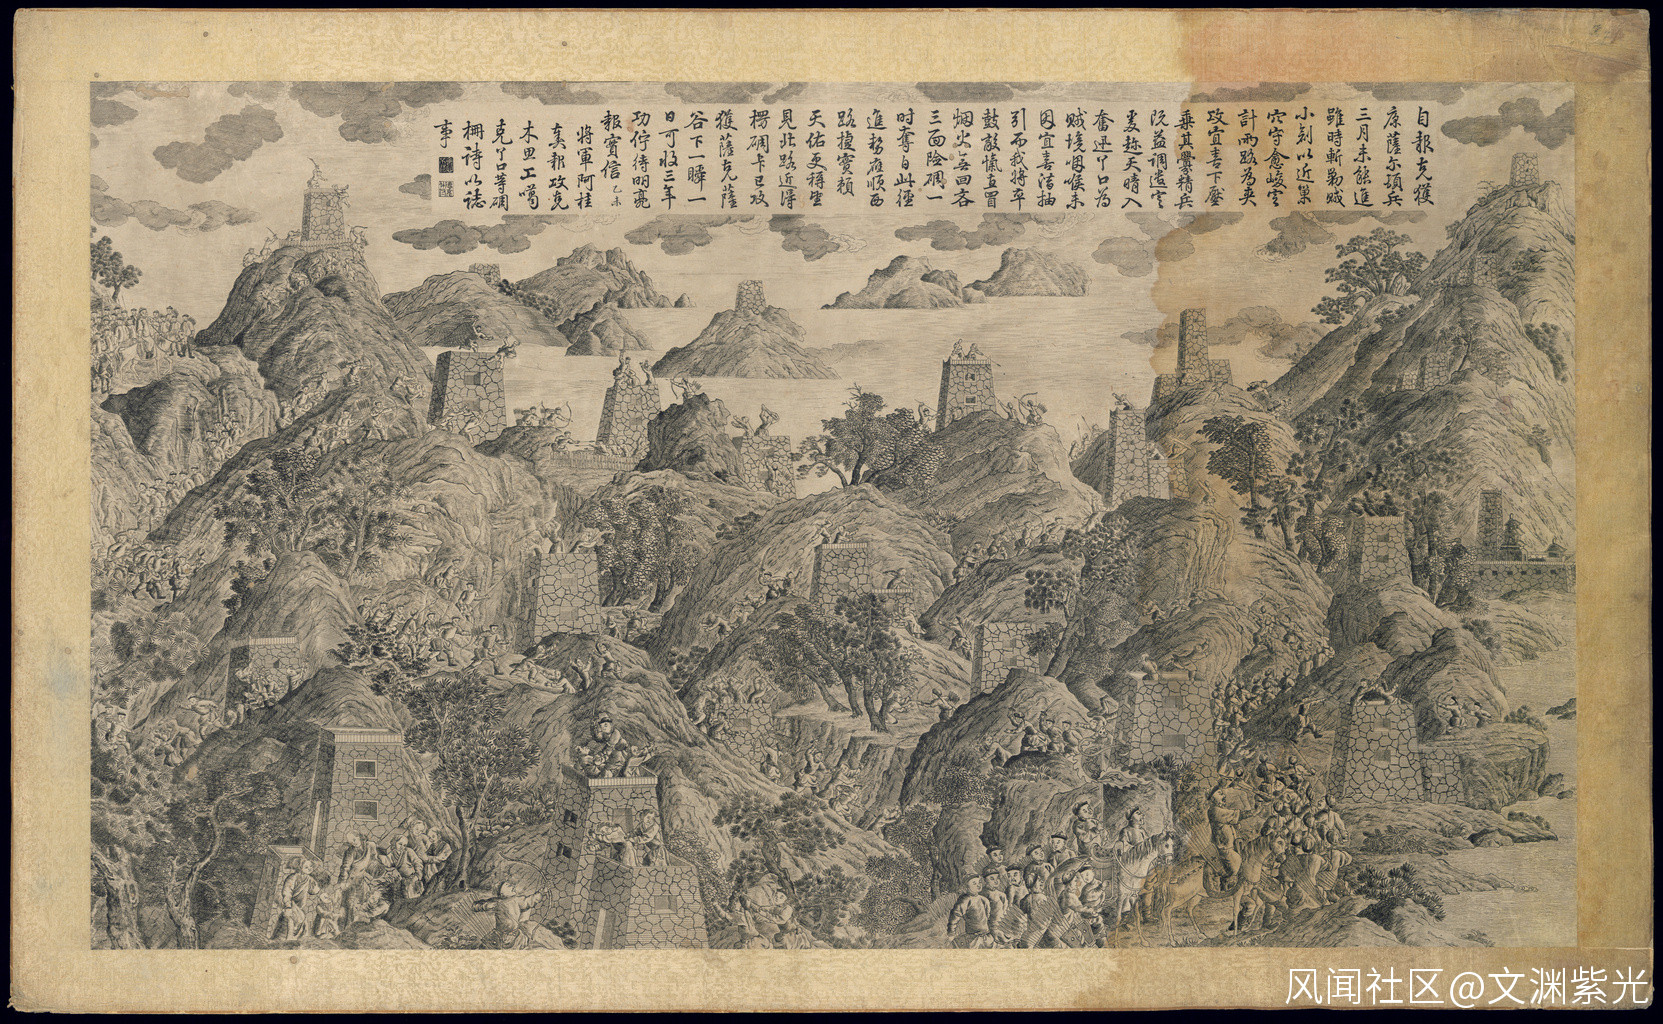 自報克獲
康薩爾頂兵
三月未能進
雖時斬勦賊
小創以近巢
穴守愈峻定
計兩路為夾
攻宜喜下壓
乗其釁精兵
既益調遣定
爰趂天晴入
奮迅丫口為
賊境咽喉未
因宜喜清抽
引而我將卒
鼓敵愾直冒
烟火無回吝
三面險碉一
時奪自此徑
進勢應順西
路
天佑更稱望
見此路近得
楞碉卡已攻
獲薩克薩
谷下一瞬一
日可收三年
功佇待明亮
報實信 乙未
將軍阿桂
奏報攻克
木思工噶
克丫口等碉
柵詩以誌
事
风闻社区@文渊紫光